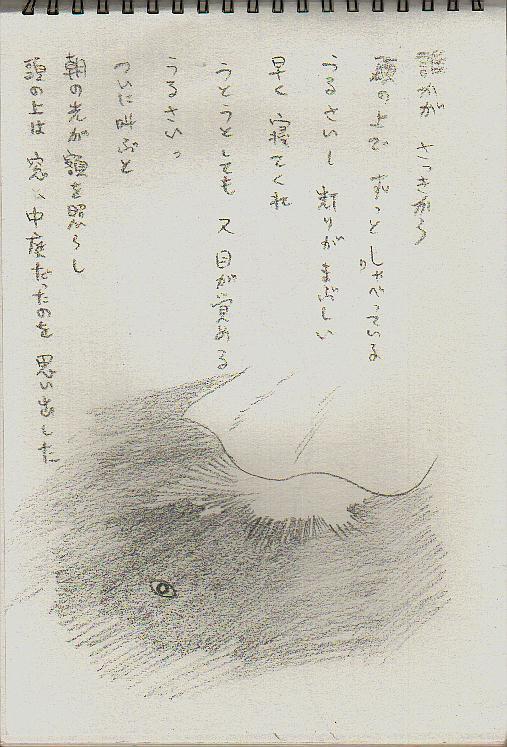 誰かが さっきから
頭の上で ずっと しゃべっている
うるさいし 灯りがまぶしい
早く 寝てくれ
うとうとしても 又 目が覚める
うるさいっ
ついに叫ぶと
朝の光が 額を照らし
頭の上は 窓、中庭だったのを 思い出した